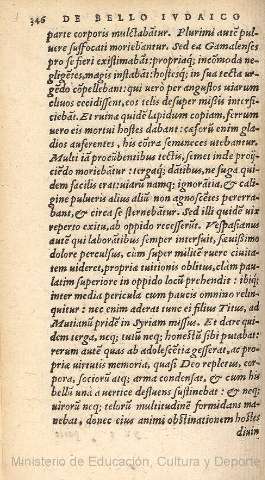 346 DE BELLO IVDAICO
parte corporis mulctabãtur. Plurimi autẽ pul-
uere suffocati moriebãtur. Sed ea Gamalenses
pro se fieri existimabãt: propriaq́; incõmoda ne-
gligẽtes, magis instabãt: hostesq́; in sua tecta ur-
gẽdo cõpellebant: qui uerò per angustos uiarum
cliuos cecidissent, eos telis desuper missis interfi-
ciebãt. Et ruina quidẽ lapidum copiam, ferrum
uero eis mortui hostes dabant: cæsorũ enim gla-
dios auferentes, his cõtra semineces utebantur.
Multi iã procũbentibus tectis, semet inde proij-
ciẽdo moriebãtur: tergaq́; dãtibus, ne fuga qui-
dem facilis erat: uiarũ namq́; ignorãtia, & cali-
gine pulueris alius aliũ non agnoscẽtes pererra-
bant, & circa se sternebãtur. Sed illi quidẽ uix
reperto exitu, ab oppido recesserũt. Vespasianus
autẽ qui laborãtibus semper interfuit, sæuissimo
dolore perculsus, cùm super militẽ ruere ciuita-
tem uideret, propriæ tuitionis oblitus, clàm pau-
latim superiore in oppido locũ prehendit: ibiq́;
inter media pericula cum paucis omnino relin-
quitur: nec enim aderat tunc ei filius Titus, ad
Mutianũ pridẽ in Syriam missus. Et dare qui-
dem terga, neq́; tutũ neq́; honestũ sibi putabat:
rerum autẽ quas ab adolescẽtia gesserat, ac pro-
priæ uirtutis memoria, quasi Deo repletus, cor-
pora, sociorũ atq́; arma condensat, & cum his
belli uim à uertice defluens sustinebat: & neq́;
uirorũ neq́; telorũ multitudinẽ formidans ma-
nebat, donec eius animi obstinationem hostes
diuin
Ministerio de Educación, Cultura y Deporte